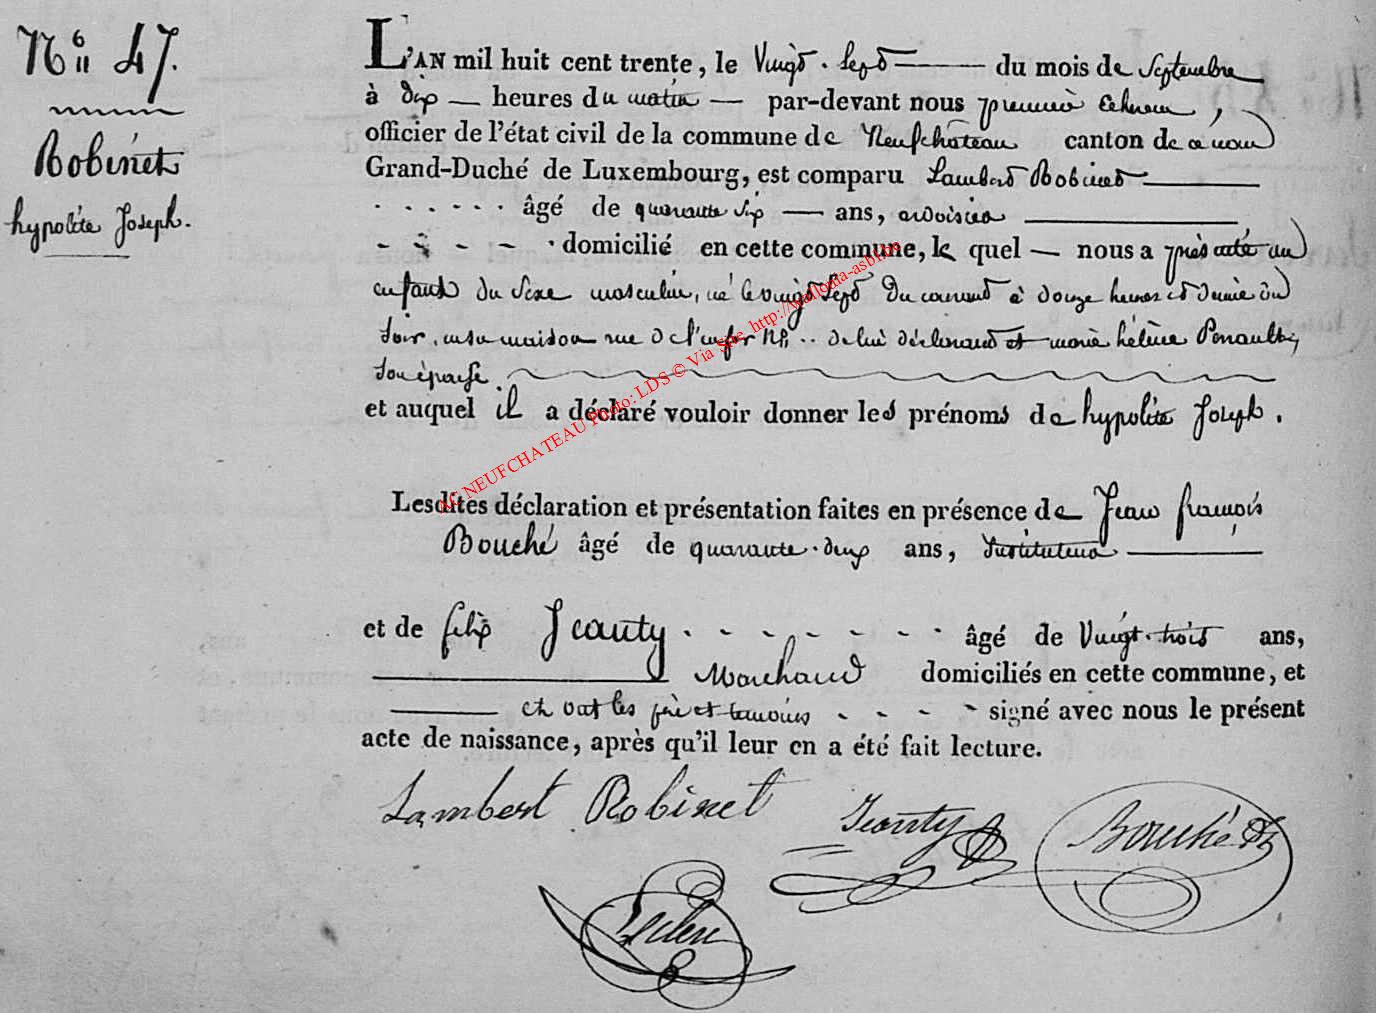 N.º 47.
Robinet
hypolite Joseph.
L'AN mil huit cent trente, le Vingt-Sept du mois de Septembre
à dix heures du matin par-devant nous premier Echevin,
officier de l'état civil de la commune de Neufchâteau canton de ce nom
Grand-Duché de Luxembourg, est comparu Lambert Robinet
âgé de quarante six ans, ardoisier
domicilié en cette commune, le quel nous a présenté un
enfant du Sexe masculin, né le vingt Sept du courant à douze heures et demie du
Soir, en sa maison rue de l'enfer Nº .. de lui déclarant et marie hélène Perrault,
Son épouse.
et auquel il a déclaré vouloir donner les prénoms de hypolite Joseph.
Lesdites déclaration et présentation faites en présence de Jean françois
Bouché âgé de quarante-deux ans, Instituteur
et de felix Jeanty âgé de Vingt-trois ans,
Marchand domiciliés en cette commune, et
et ont les père et temoins signé avec nous le présent
acte de naissance, après qu'il leur en a été fait lecture.
Lambert Robinet Jeanty Bouché
AC NEUFCHATEAU Photo: LDS © Via Site http://wallonia-asbl.be